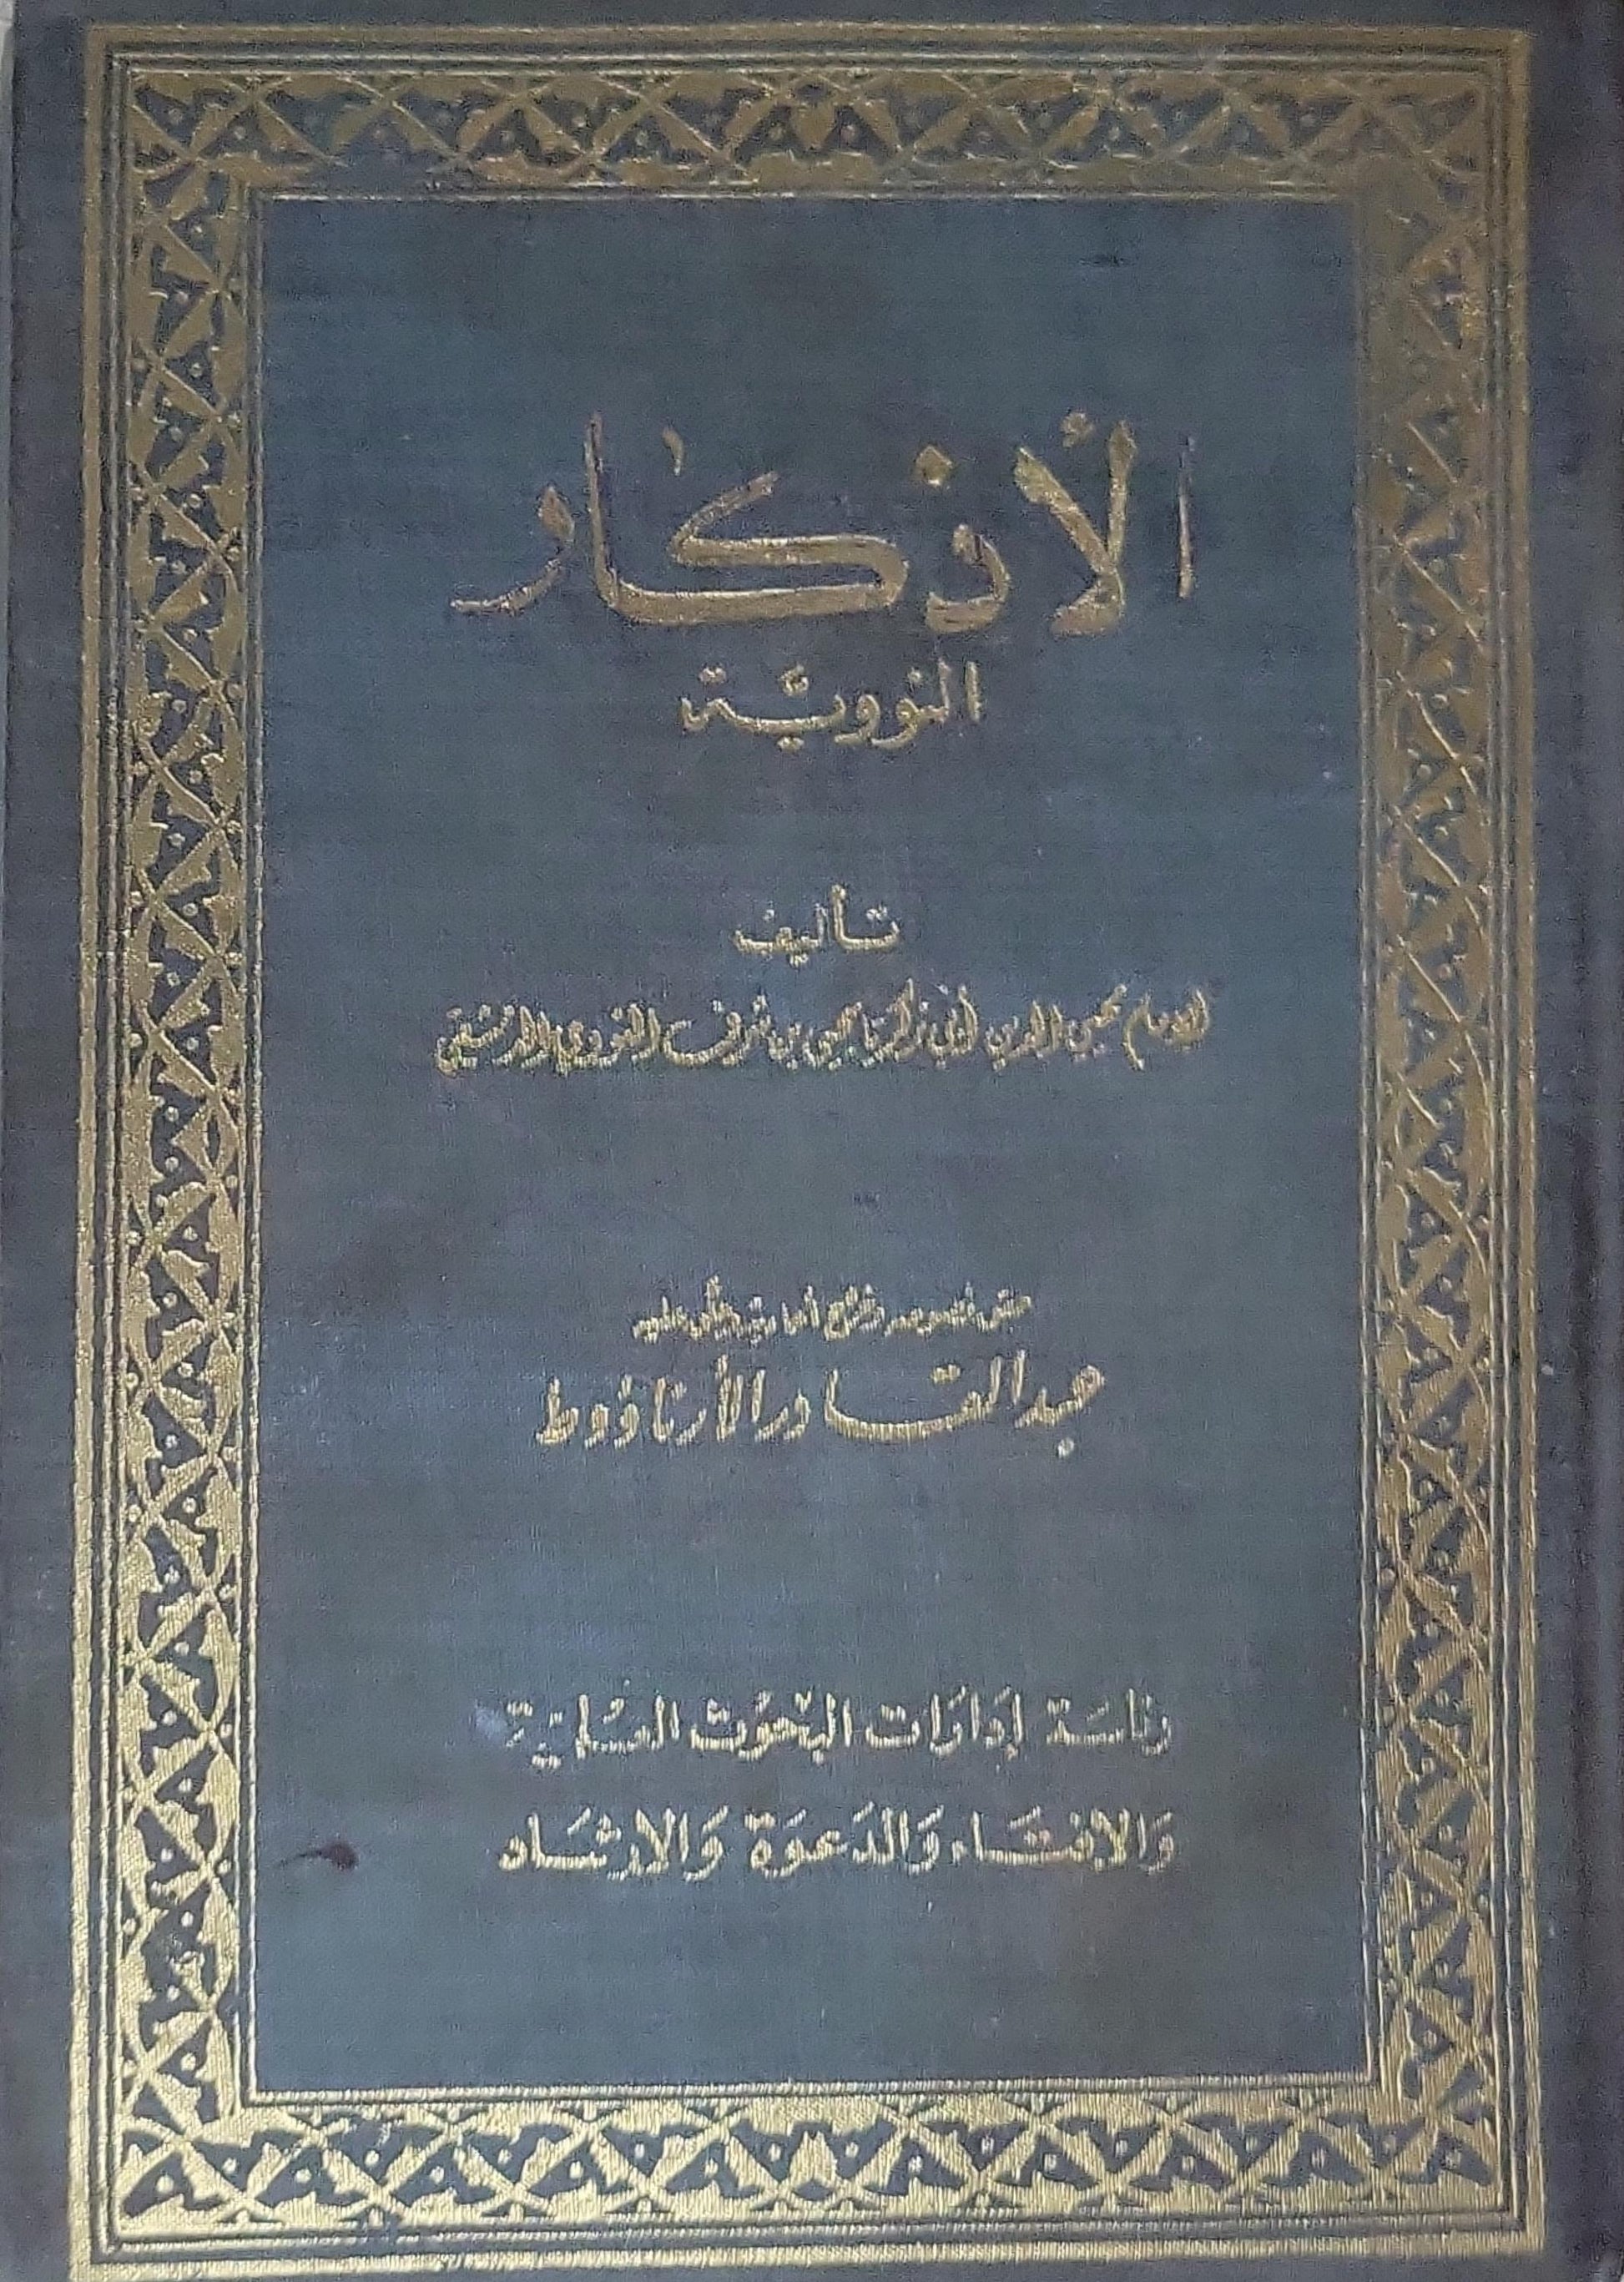 الأذكار
النوويّة
تأليف
الإمام محيي الدين أبي زكريا يحيى بن شرف النووي الدمشقي
حقق نصوصه وخرج أحاديثه وعلق عليه
عبد القادر الأرناؤوط
رئاسة إدارات البحوث العلمية
والإفتاء والدعوة والإرشاد